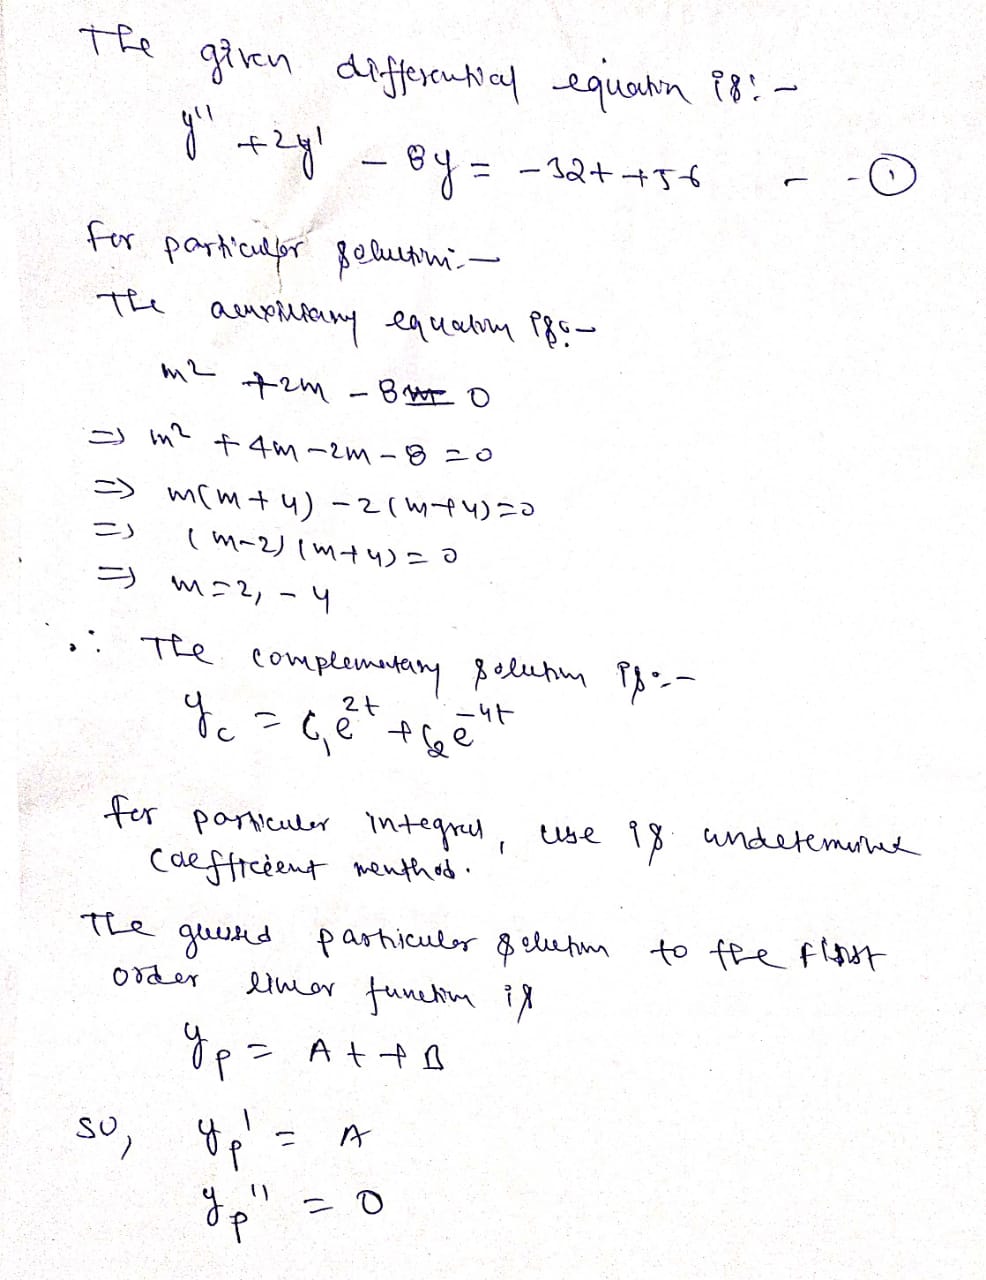 The given differential equation is:-
y'' + 2y' - 8y = -32t + 56 - - ①
for particular solution:-
The auxiliary equation is:-
m² + 2m - 8 = 0
=> m² + 4m - 2m - 8 = 0
=> m(m + 4) - 2(m + 4) = 0
=> (m - 2)(m + 4) = 0
=> m = 2, - 4
∴ The complementary solution is:-
y_c = C₁e^{2t} + C₂e^{-4t}
for particular integral, use is undetermined
coefficient menthod.
The guessed particular solution to the first
order linear function is
y_p = At + B
so, y_p' = A
y_p'' = 0